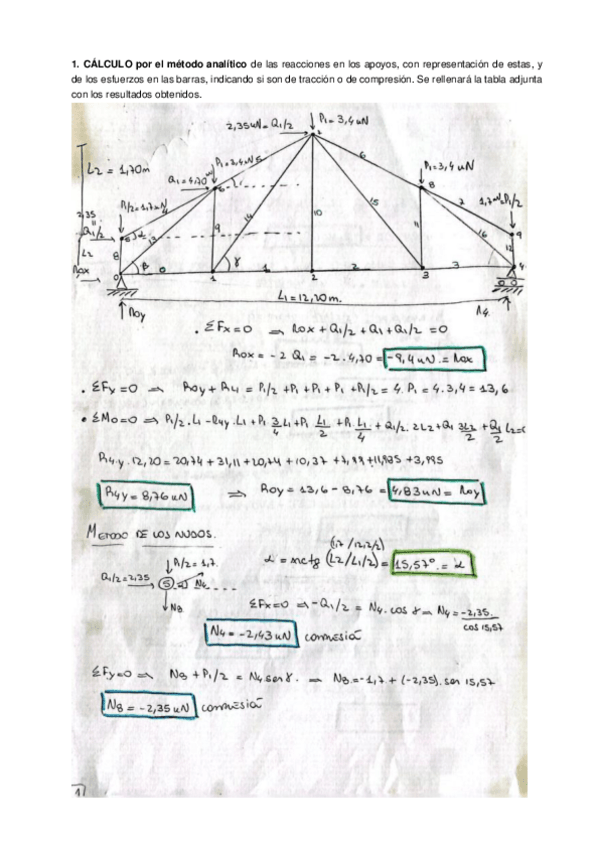 1. CÁLCULO por el método analítico de las reacciones en los apoyos, con representación de estas, y
de los esfuerzos en las barras, indicando si son de tracción o de compresión. Se rellenará la tabla adjunta
con los resultados obtenidos.
2,35 uN = Q1/2 P1 = 3,4 uN
L2 = 1,70m
Q1 = 4,70 uN
P1 = 3,4 uN
P1/2 = 1,7 uN
1,7 uN = P1/2
2,35
Q1/2
L2
Rox
6
8
7
9
14
10
15
11
16
12
13
8
β
γ
0
1
2
3
4
L1 = 12,20 m.
Roy
R4
· ΣFx=0 ⇒ Rox + Q1/2 + Q1 + Q1/2 = 0
Rox = -2 Q1 = -2·4,70 = -9,4 uN = Rox
· ΣFy=0 ⇒ Roy + R4 = P1/2 + P1 + P1 + P1 + P1/2 = 4·P1 = 4·3,4 = 13,6
· ΣMo=0 ⇒ P1/2·L1 - R4y·L1 + P1 3/4 L1 + P1 L1/2 + P1·L1/4 + Q1/2·2L2 + Q1 3L2/2 + Q1/2 L2=0
R4y·12,20 = 20,74 + 31,11 + 20,74 + 10,37 + 7,99 + 11,985 + 3,995
R4y = 8,76 uN ⇒ Roy = 13,6 - 8,76 = 4,83 uN = Roy
METODO DE LOS NUDOS.
P1/2 = 1,7
Q1/2 = 2,35
5
N4
N8
(1,7/12,2/2)
α = arctg (L2/L1/2) = 15,57° = α
ΣFx=0 ⇒ -Q1/2 = N4·cos γ ⇒ N4 = -2,35 / cos 15,57
N4 = -2,43 uN compresió
ΣFy=0 ⇒ N8 + P1/2 = N4 sen γ. ⇒ N8 = -1,7 + (-2,35)·sen 15,57
N8 = -2,35 uN compresió
1/